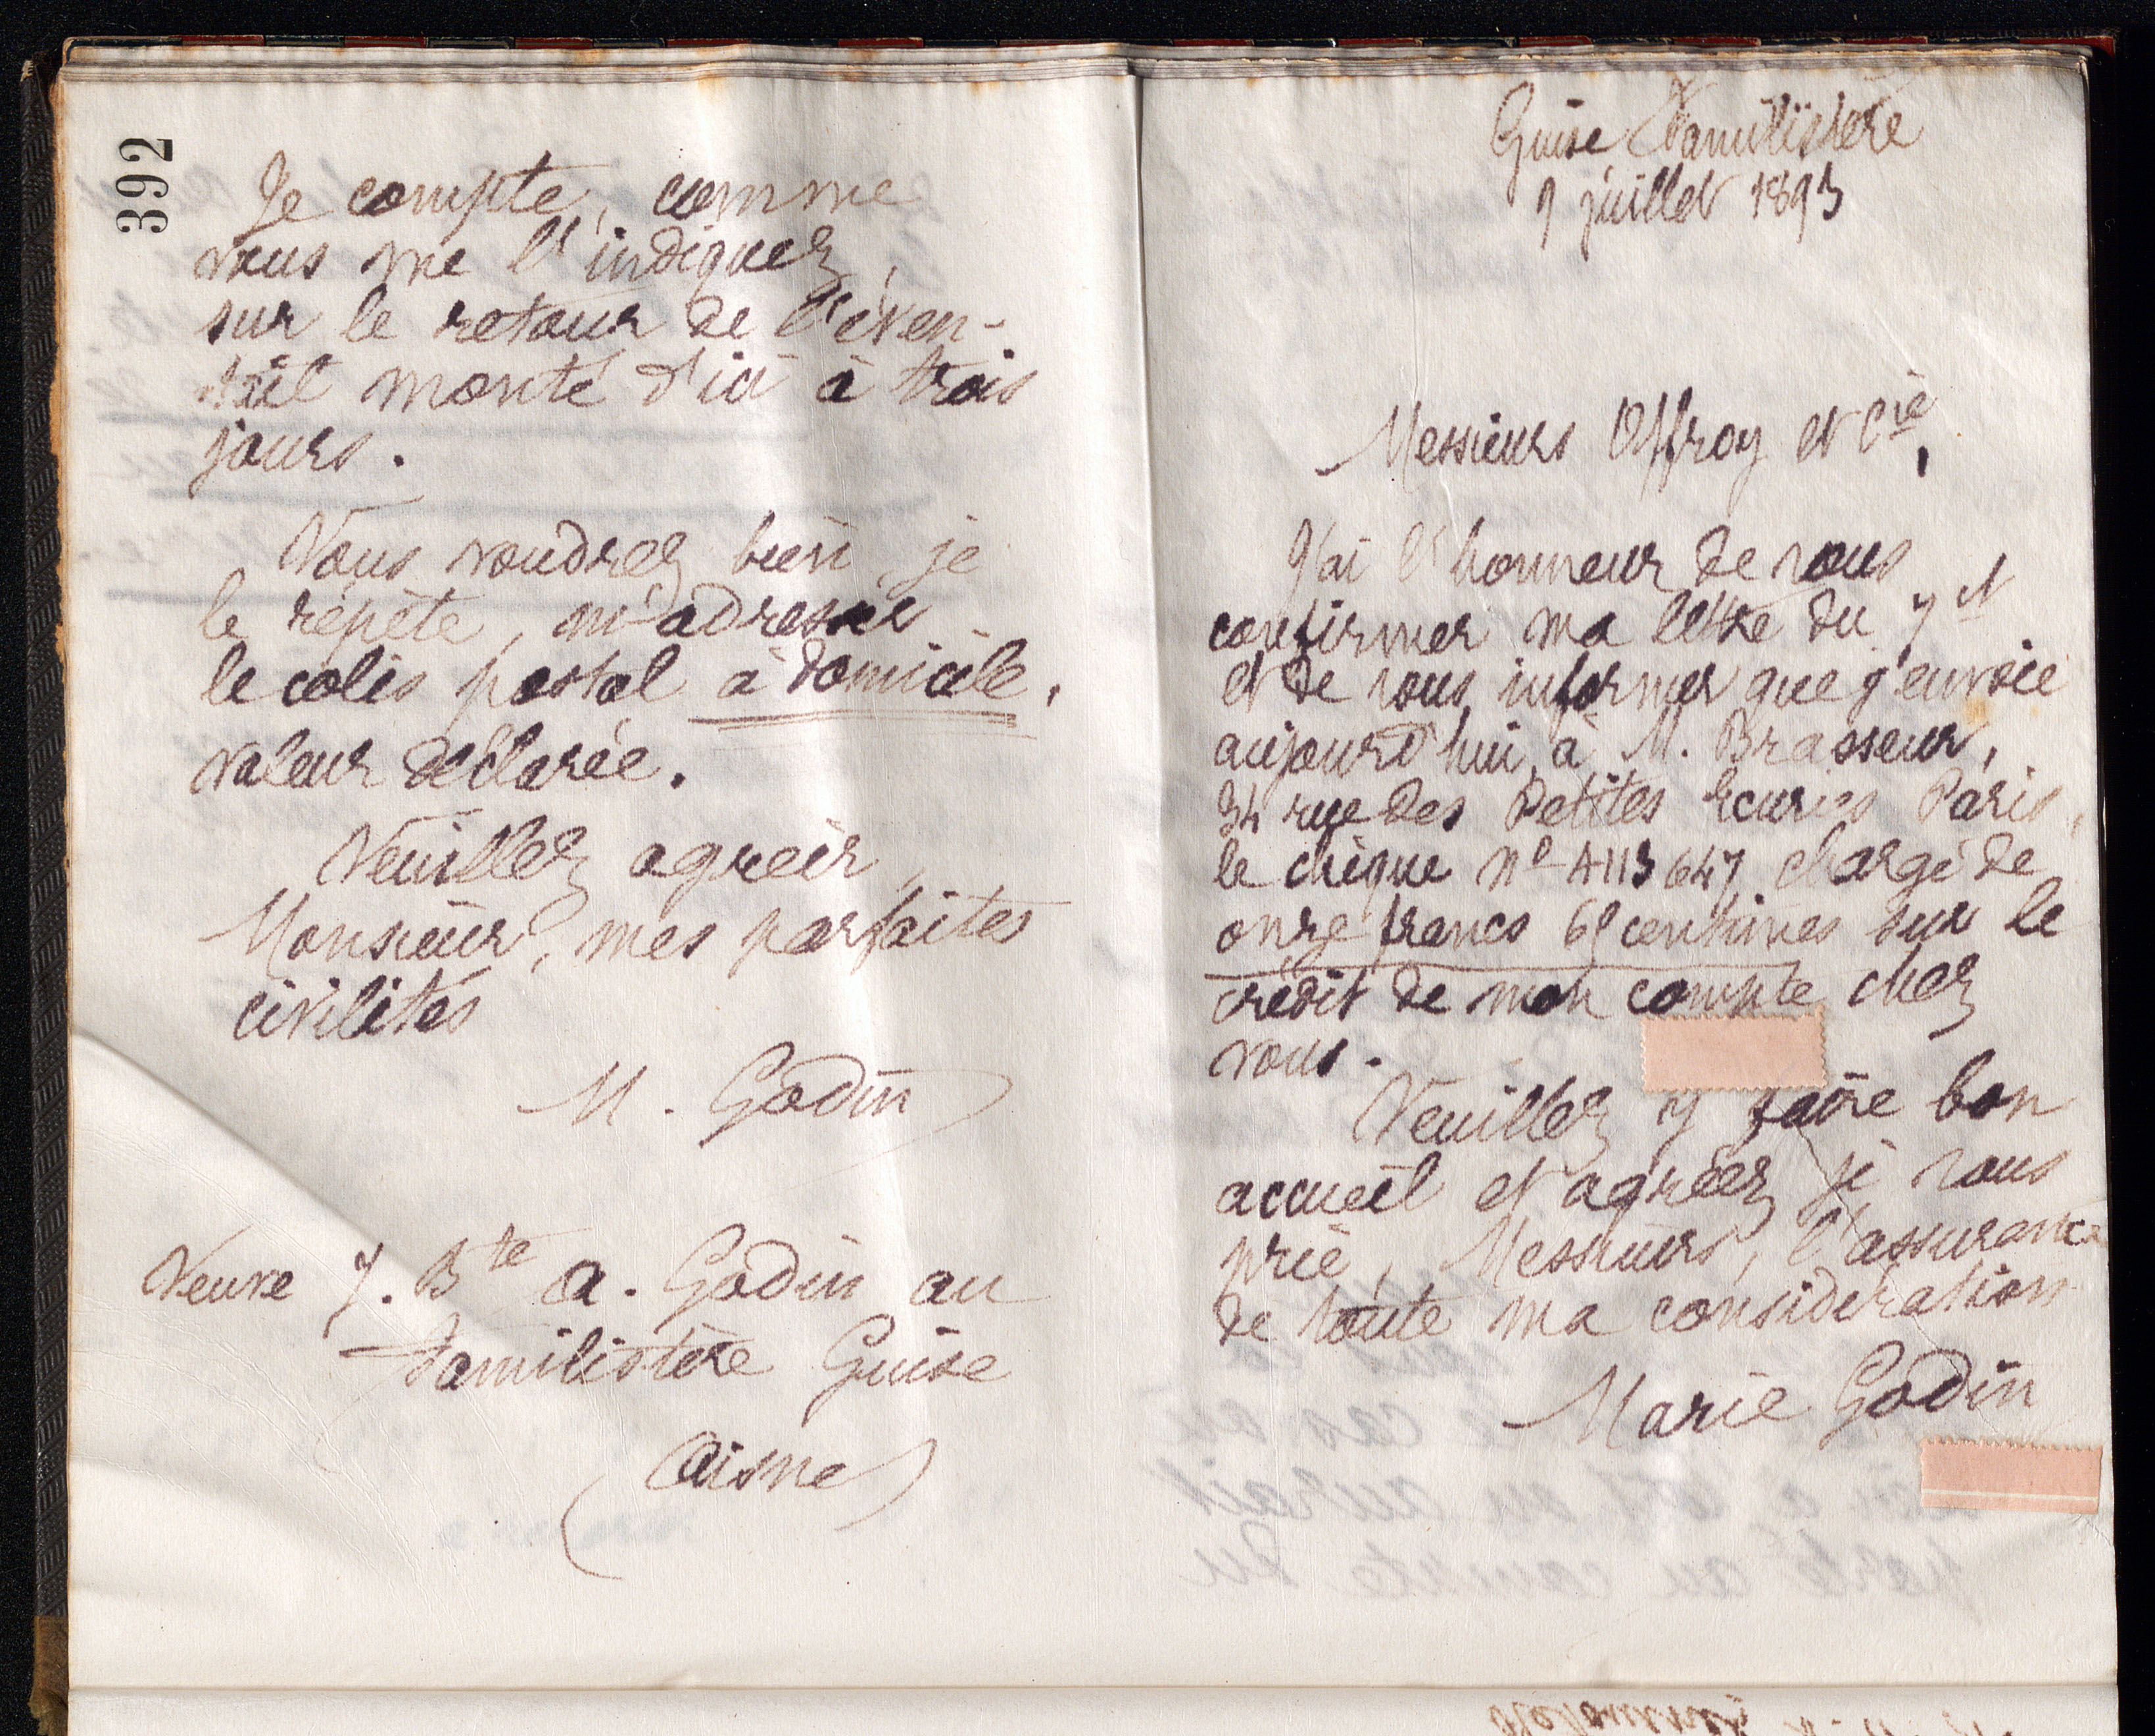 392
Je compte, comme
vous me l'indiquez,
sur le retour de l'éven-
tail monté d'ici à trois
jours.
Vous voudrez bien, je
le répète, m'adresser
le colis postal à domicile,
valeur déclarée.
Veuillez agréer,
Monsieur, mes parfaites
civilités
M. Godin
Veuve J. Bte A. Godin au
Familistère Guise
(Aisne)
Guise Familistère
9 juillet 1893
Messieurs Offroy et Cie,
J'ai l'honneur de vous
confirmer ma lettre du 7 ct
et de vous informer que j'envoie
aujourd'hui, à M. Brasseur,
34 rue des Petites Ecuries Paris,
le chèque no A113647 chargé de
onze francs centimes sur le
crédit de mon compte chez
vous.
Veuillez y faire bon
accueil et agréez, je vous
prie, Messieurs, l'assurance
de toute ma considération
Marie Godin